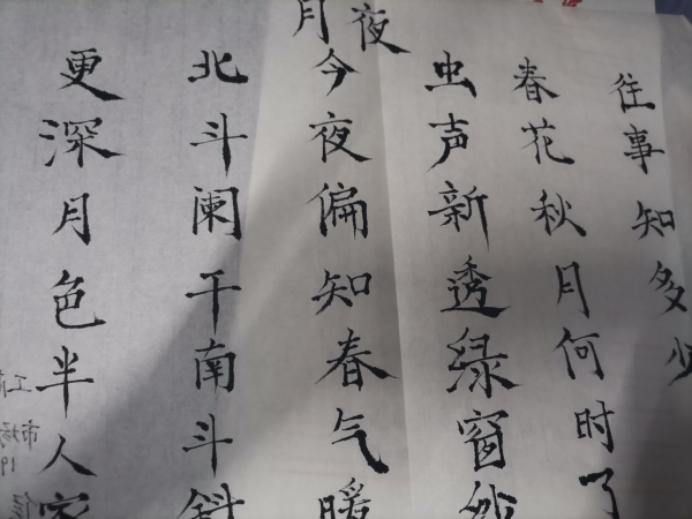 月夜
更深月色半人家
北斗阑干南斗斜
今夜偏知春气暖
虫声新透绿窗纱
春花秋月何时了
往事知多少
工
市场
19